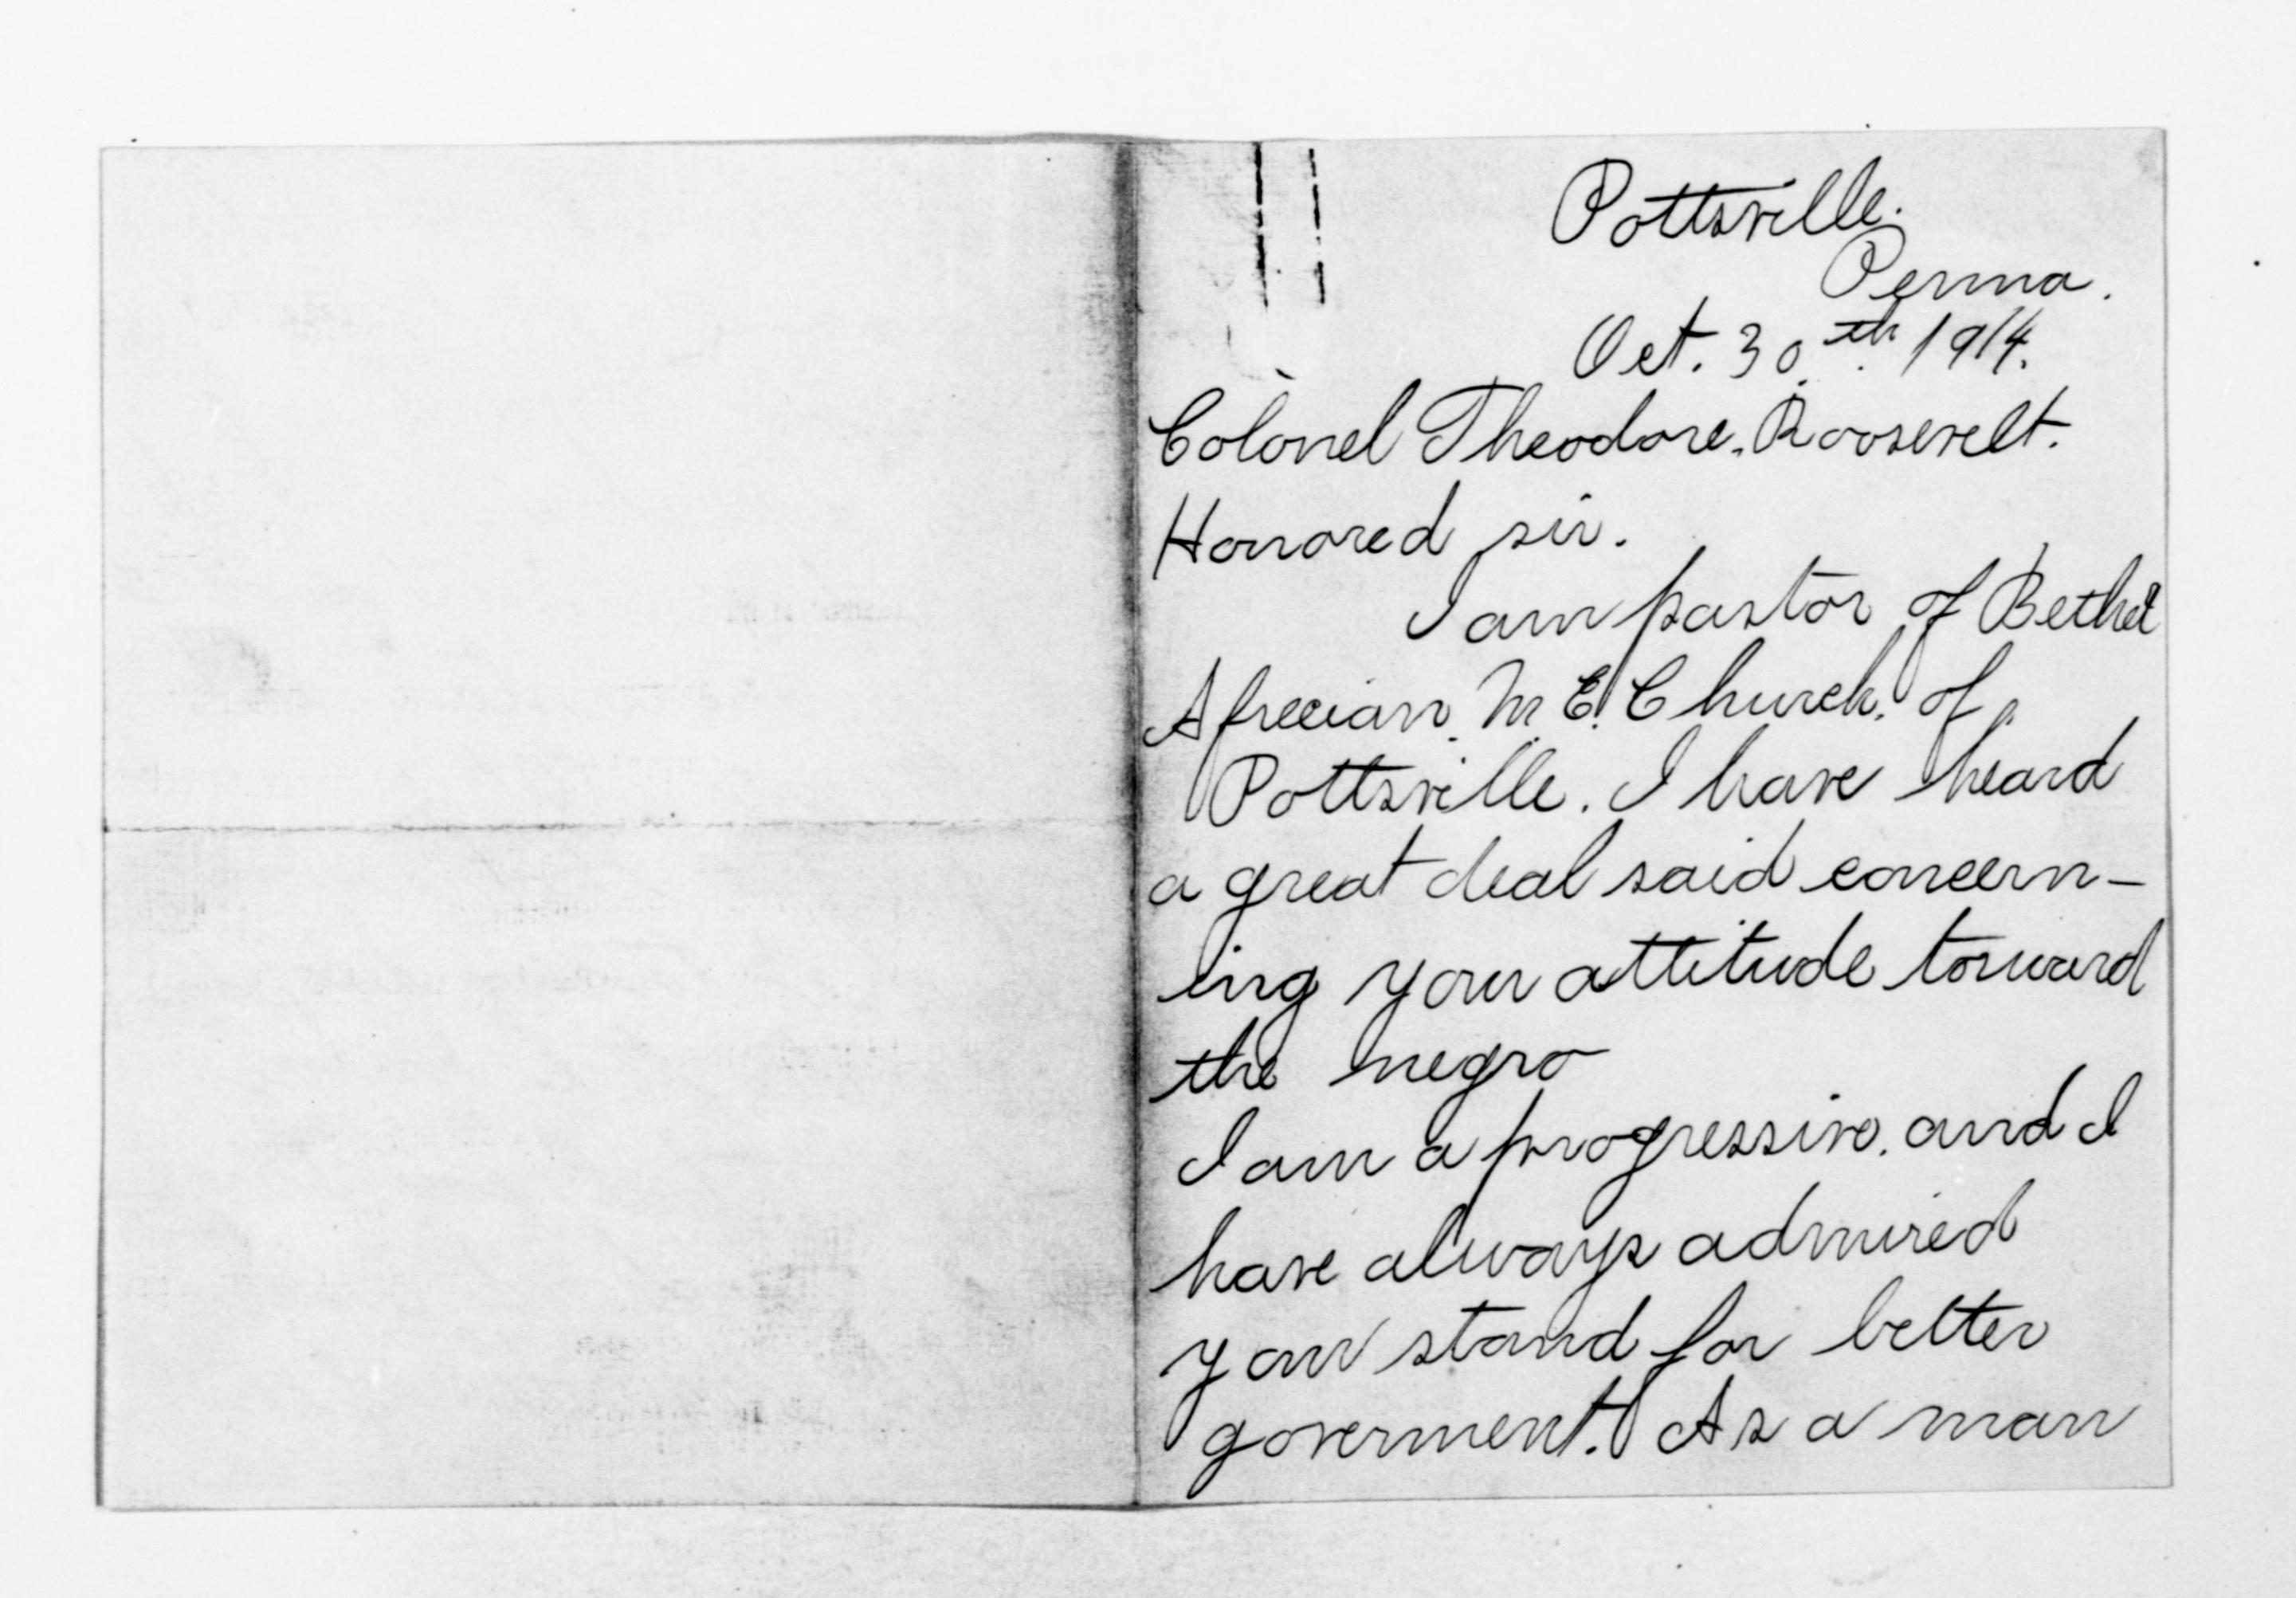 Pottsville.
Penna.
Oct. 30th. 1914.
Colonel Theodore. Roosevelt.
Honored sir.
I am pastor of Bethel
Africian. M. E. Church. of
Pottsville. I have heard
a great deal said concern-
ing your attitude torward
the negro
I am a progressive. and I
have always admired
your stand for better
goverment. As a man